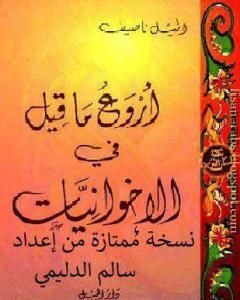 إميل ناصيف
أروع ما قيل
في
الاخوانيات
نسخة ممتازة من إعداد
سالم الدليمي
دار الجيل